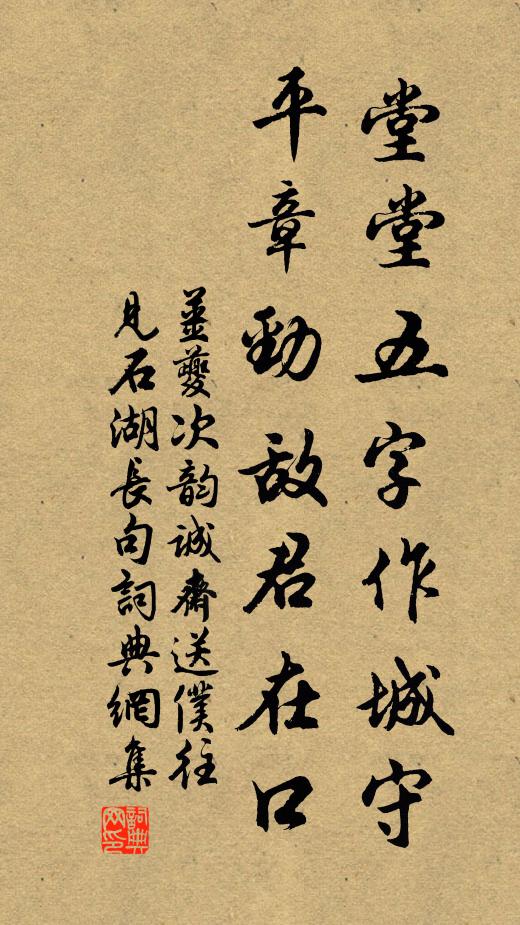 堂堂五字作城守
平章勁敌君在口
姜夔次韵誠齋送僕往
見石湖長句詞典網集
詞典网印